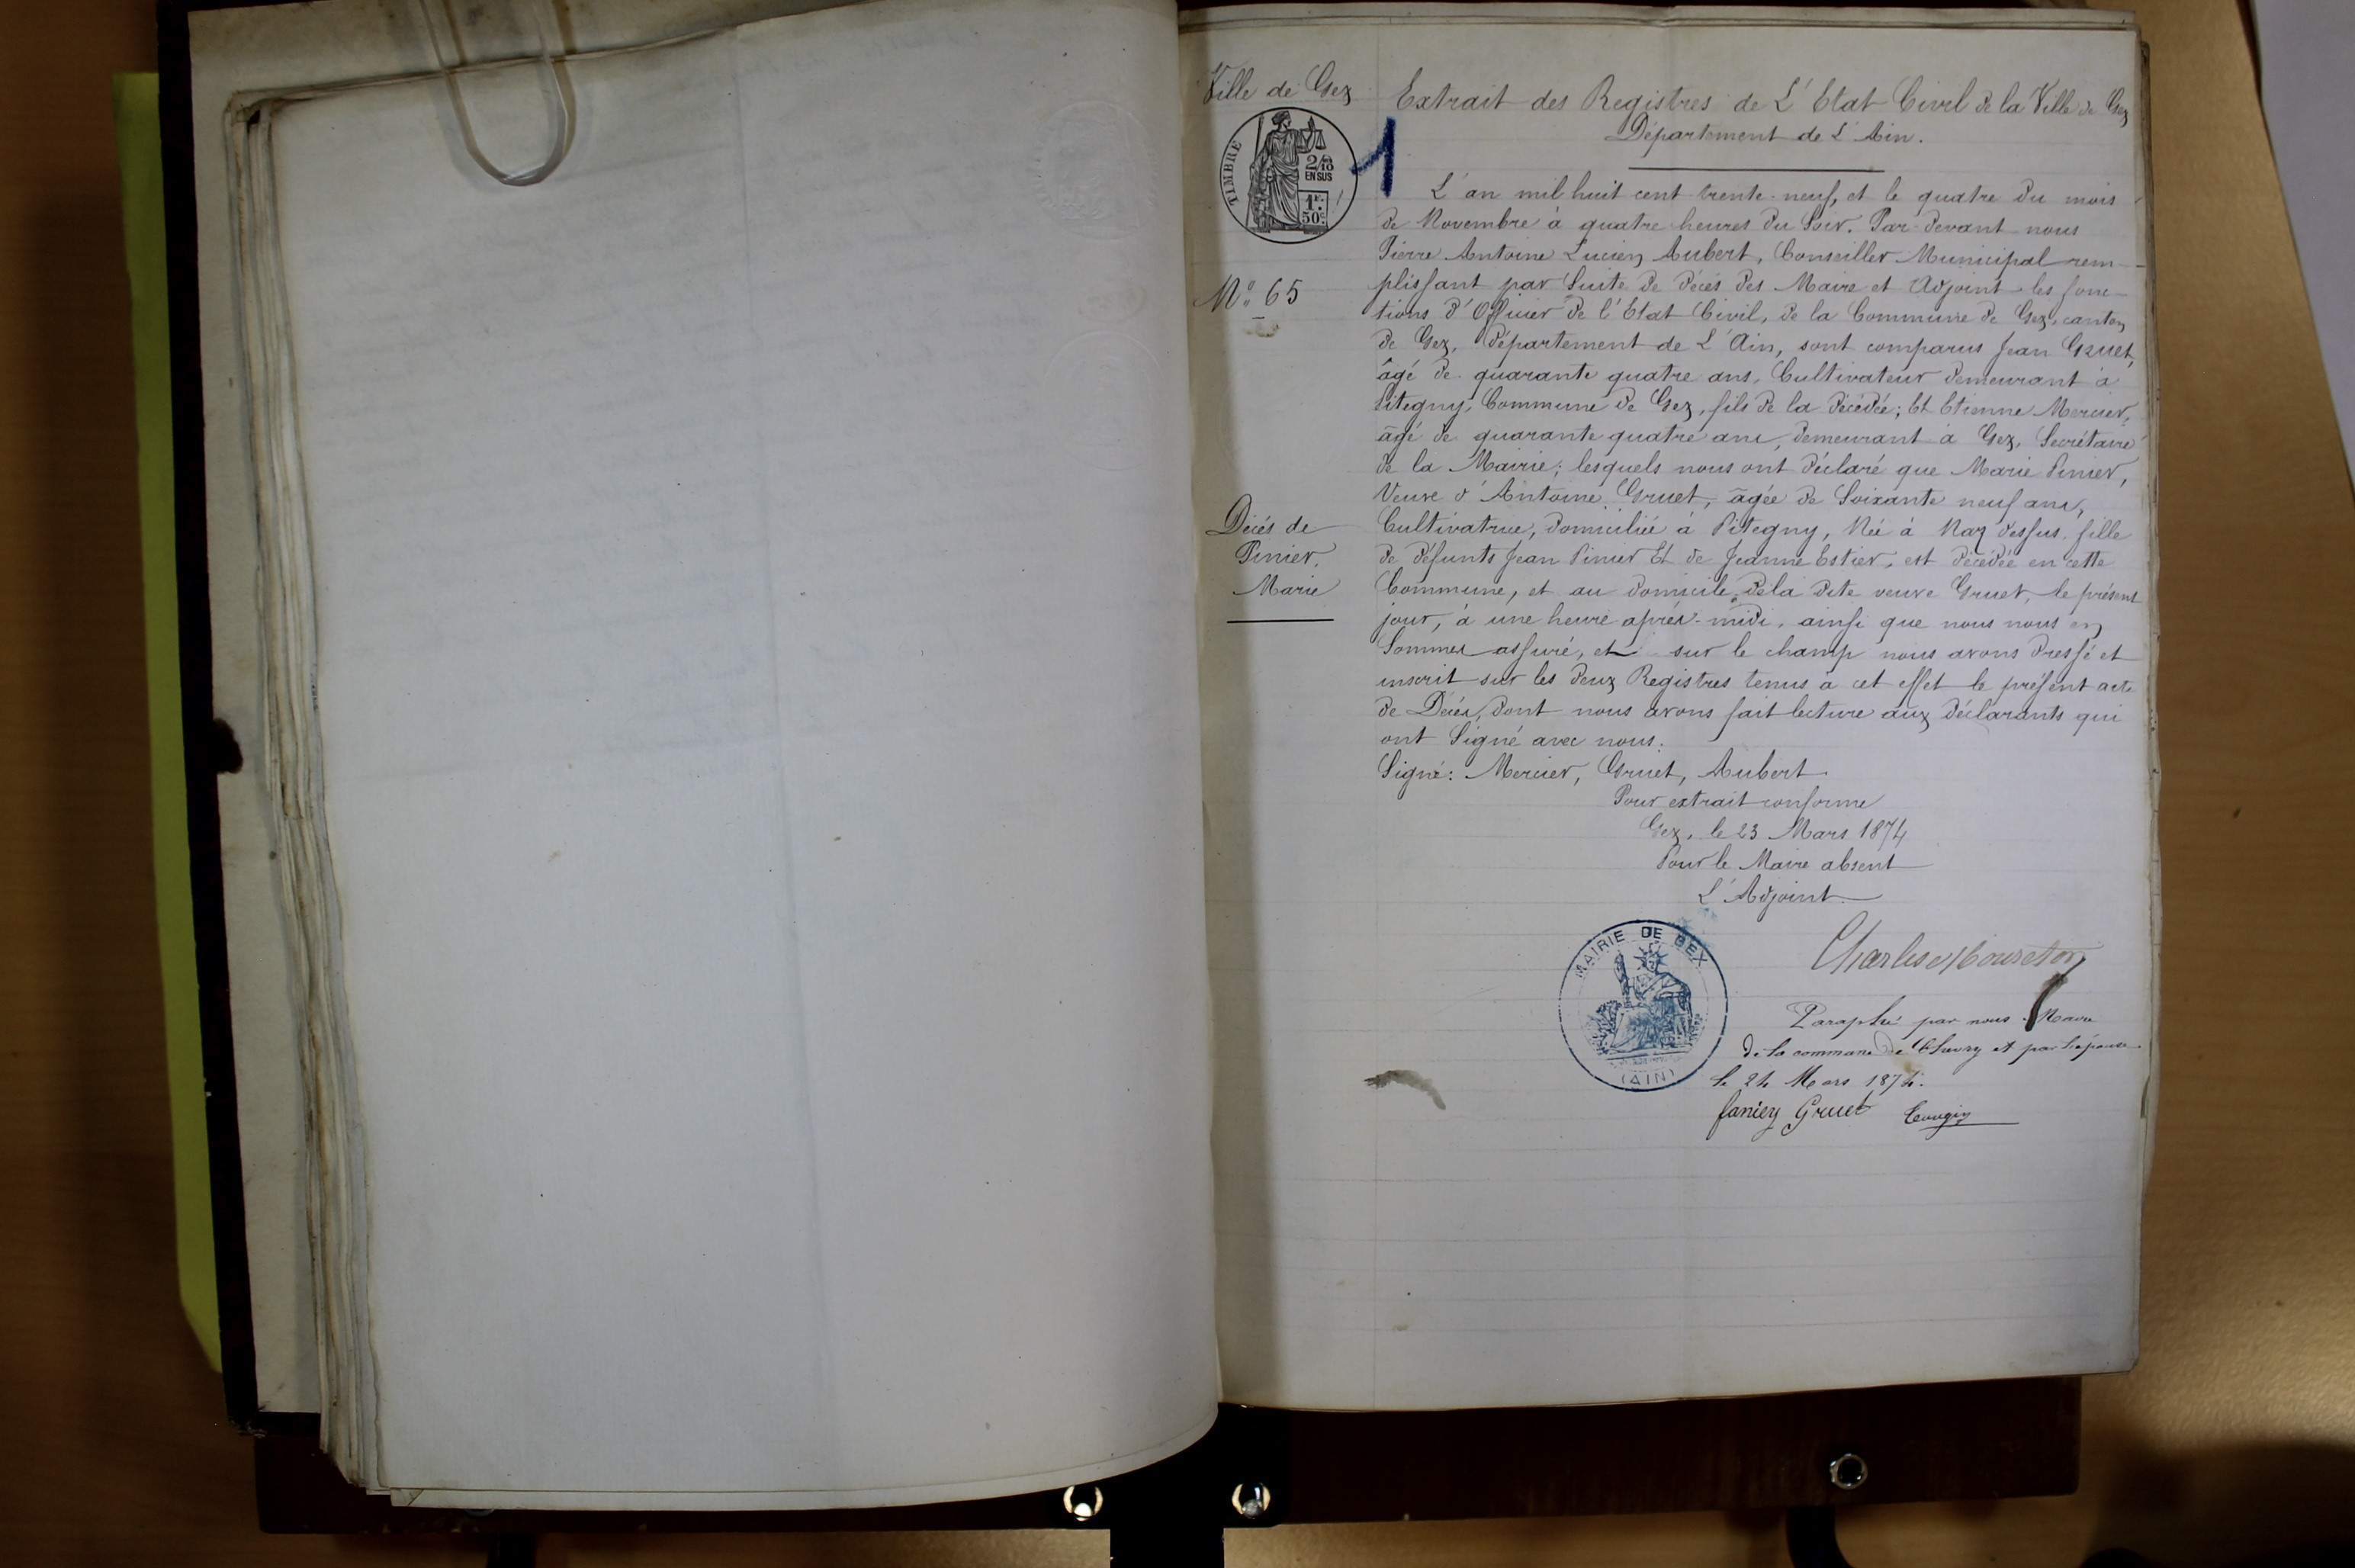 Ville de Gex
Extrait des Registres de L'Etat Civil de la Ville de Gex
Département de L'Ain.
TIMBRE
2/10
EN SUS
1F.
50c.
1
L'an mil huit cent trente-neuf, et le quatre du mois
de Novembre à quatre heures du Soir. Par-devant nous
Pierre Antoine Lucien Aubert, Conseiller Municipal rem-
plissant par Suite de décès des Maire et Adjoint les fonc-
tions d'Officier de l'Etat Civil, de la Commune de Gex, canton
de Gex, département de L'Ain, sont comparus Jean Gruet,
âgé de quarante quatre ans, Cultivateur demeurant à
Pitegny, Commune de Gex, fils de la décédée; Et Etienne Mercier,
âgé de quarante quatre ans, demeurant à Gex, Secrétaire
de la Mairie; lesquels nous ont déclaré que Marie Pinier,
Veuve d'Antoine Gruet, âgée de Soixante neuf ans,
Cultivatrice, domiciliée à Pitegny, Née à Naz dessus, fille
de défunts Jean Pinier Et de Jeanne Estier, est décédée en cette
Commune, et au domicile de la dite veuve Gruet, le présent
jour, à une heure après-midi, ainsi que nous nous en
Sommes assuré, et sur le champ nous avons dressé et
inscrit sur les deux Registres tenus à cet effet le présent acte
de Décès, dont nous avons fait lecture aux déclarants qui
ont Signé avec nous.
Signé: Mercier, Gruet, Aubert
Nº 65
Décès de
Pinier,
Marie
Pour extrait conforme
Gex, le 23 Mars 1874
Pour le Maire absent
L'Adjoint
MAIRIE DE GEX
(AIN)
Charles
Paraphé par nous Maire
de la commune de Chevry et par
le 24 Mars 1874.
Gruet